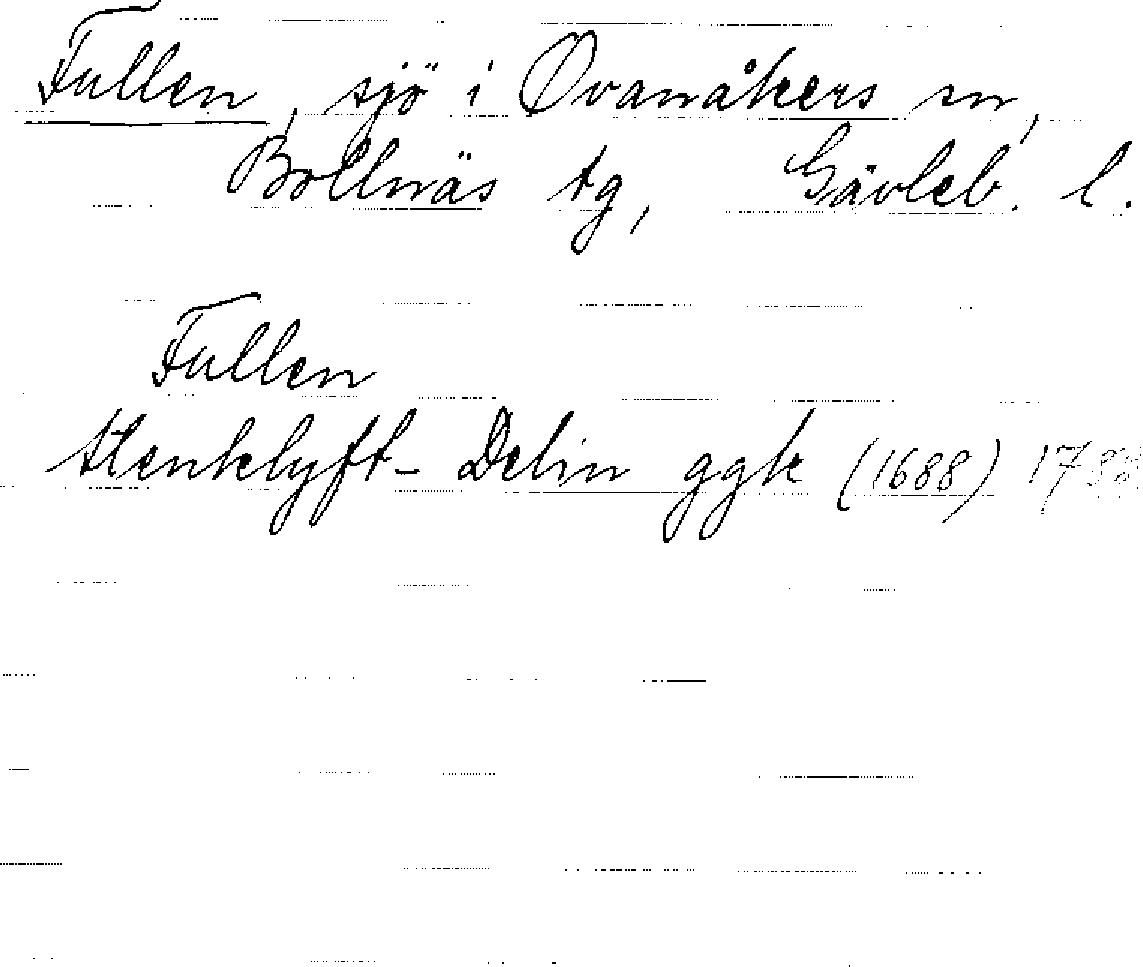 Fullen, sjö i Ovanåkers sn,
Bollnäs tg, Gävleb. l.
Fullen
Stenklyft- Delin ggk (1688) 1738